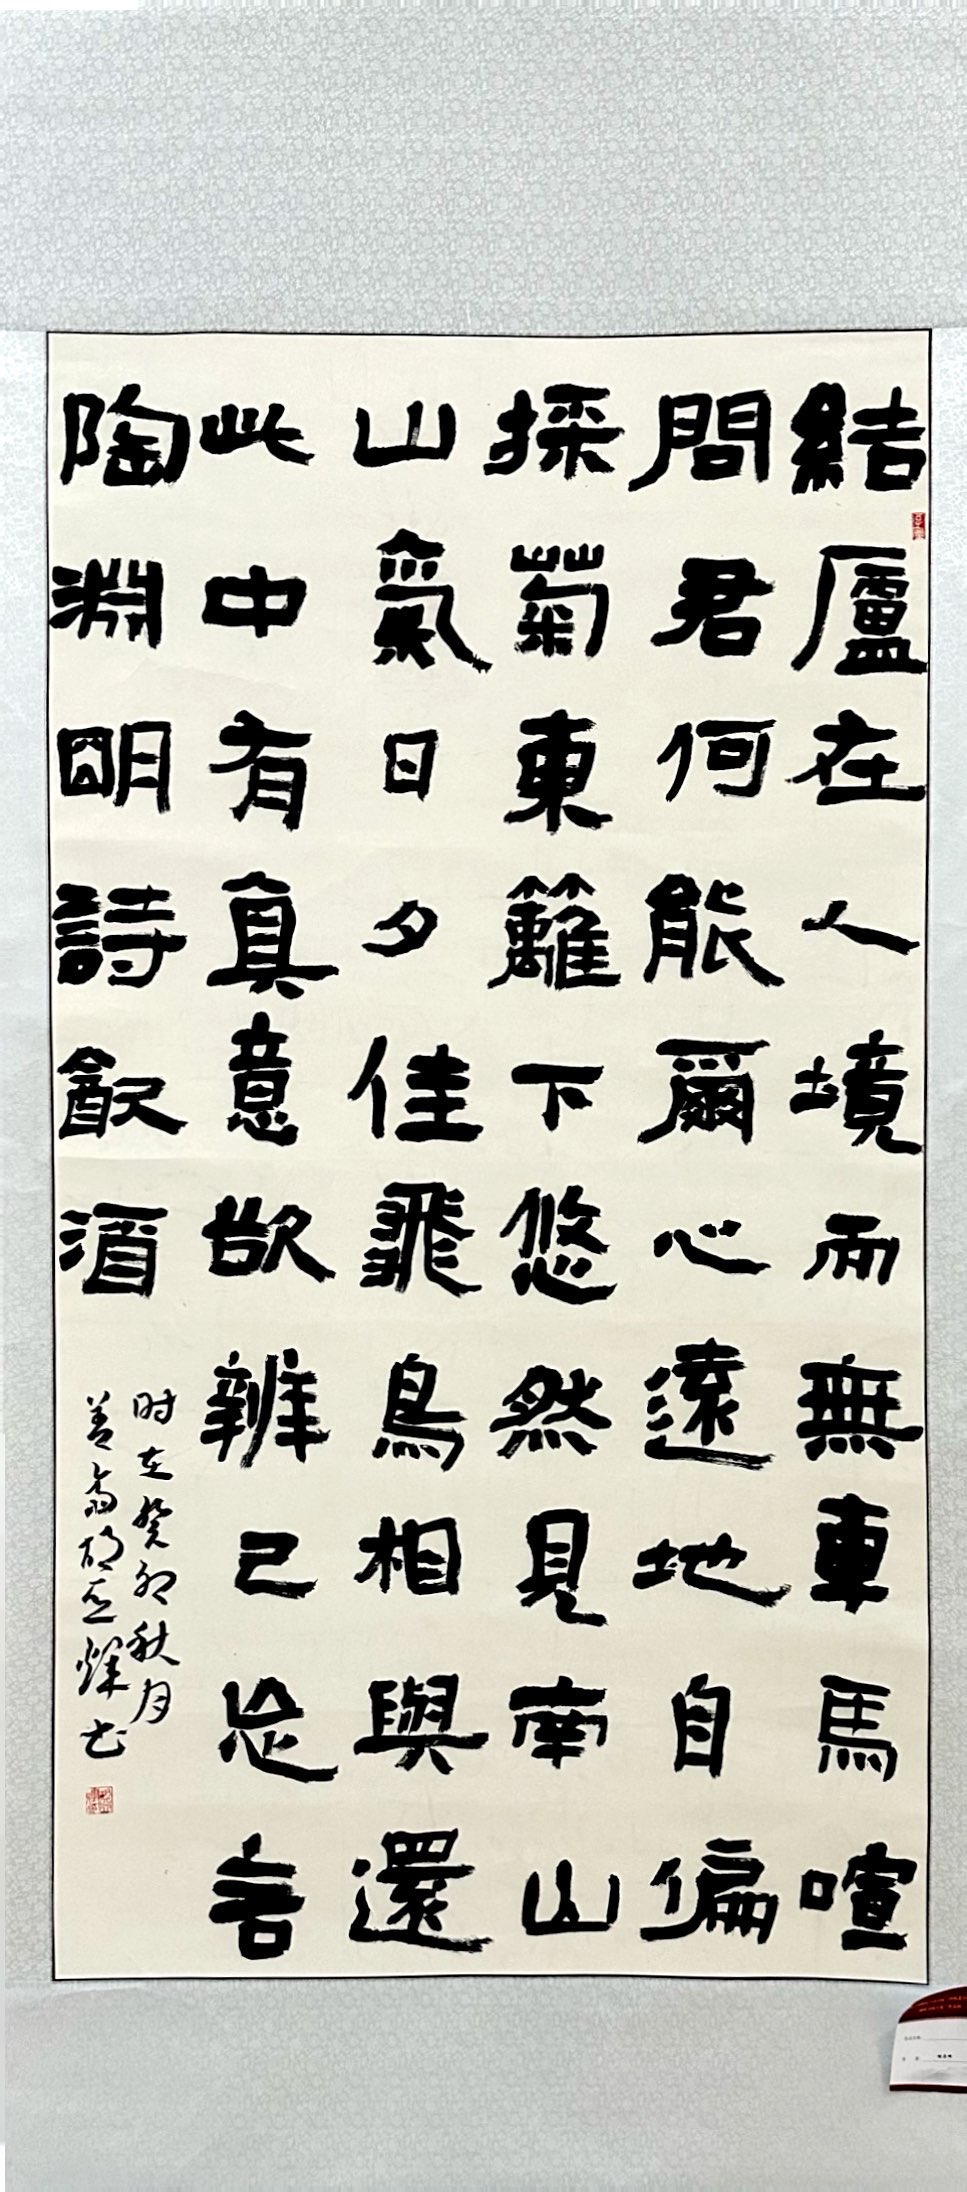 結廬在人境而無車馬喧
問君何能爾心遠地自偏
採菊東籬下悠然見南山
山氣日夕佳飛鳥相與還
此中有真意欲辨已忘言
陶淵明詩飲酒
时在癸卯秋月